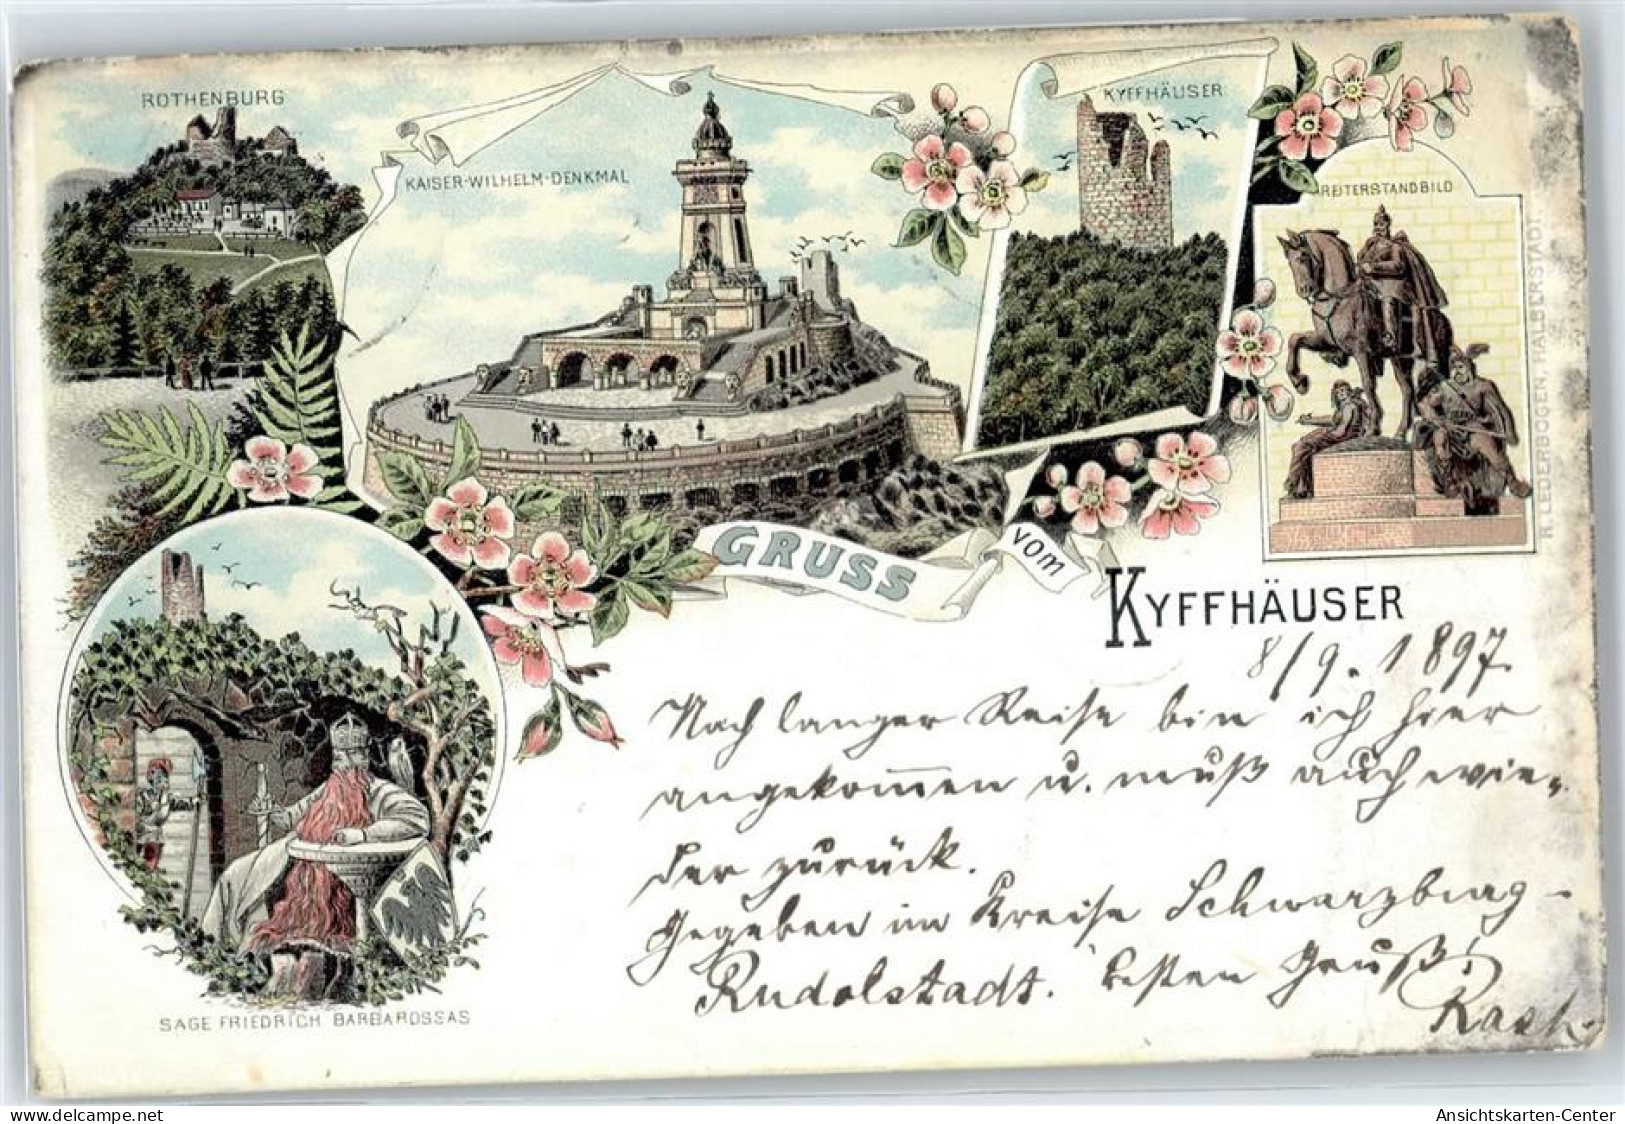 ROTHENBURG
KAISER-WILHELM-DENKMAL
KYFFHÄUSER
REITERSTANDBILD
R. LEDERBOGEN, HALBERSTADT
GRUSS
vom
KYFFHÄUSER
8/9. 1897.
Nach langer Reise bin ich hier
angekommen u. muß auch wie-
der zurück.
Gegeben im Kreise Schwarzburg-
Rudolstadt. besten Gruß!
SAGE FRIEDRICH BARBAROSSAS
delcampe.net
Ansichtskarten-Center